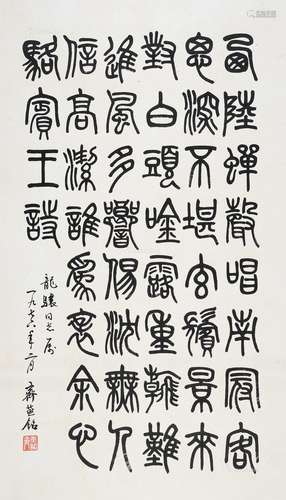 西陸蟬聲唱南冠客
思深不堪玄鬢景來
對白頭唫露重難
進風多響㑥沈無人
信高潔誰為表余心
駱賓王詩
龍驤同志屬
一九七六年二月 齊燕銘